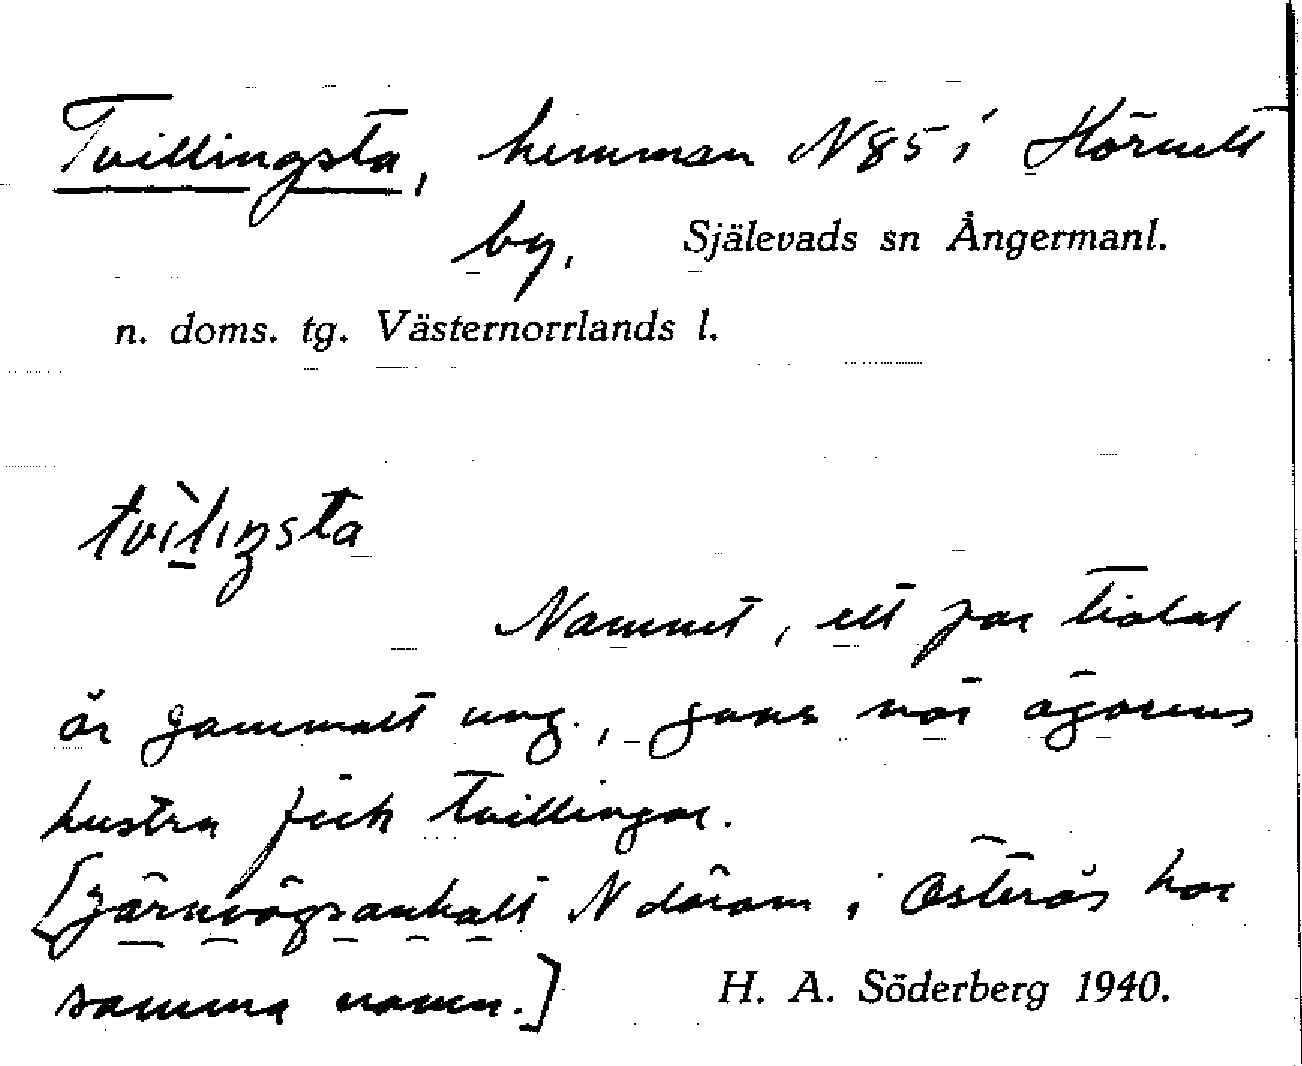 Tvillingsta, hemman N 85 i Hörnett
by, Själevads sn Ångermanl.
n. doms. tg. Västernorrlands l.
tvìlıŋsta
Namnet, ett par tiotal
år gammalt ung., gavs när ägarens
hustru fick tvillingar.
[Järnvägsanhalt N därom i Österås har
samma namn.] H. A. Söderberg 1940.